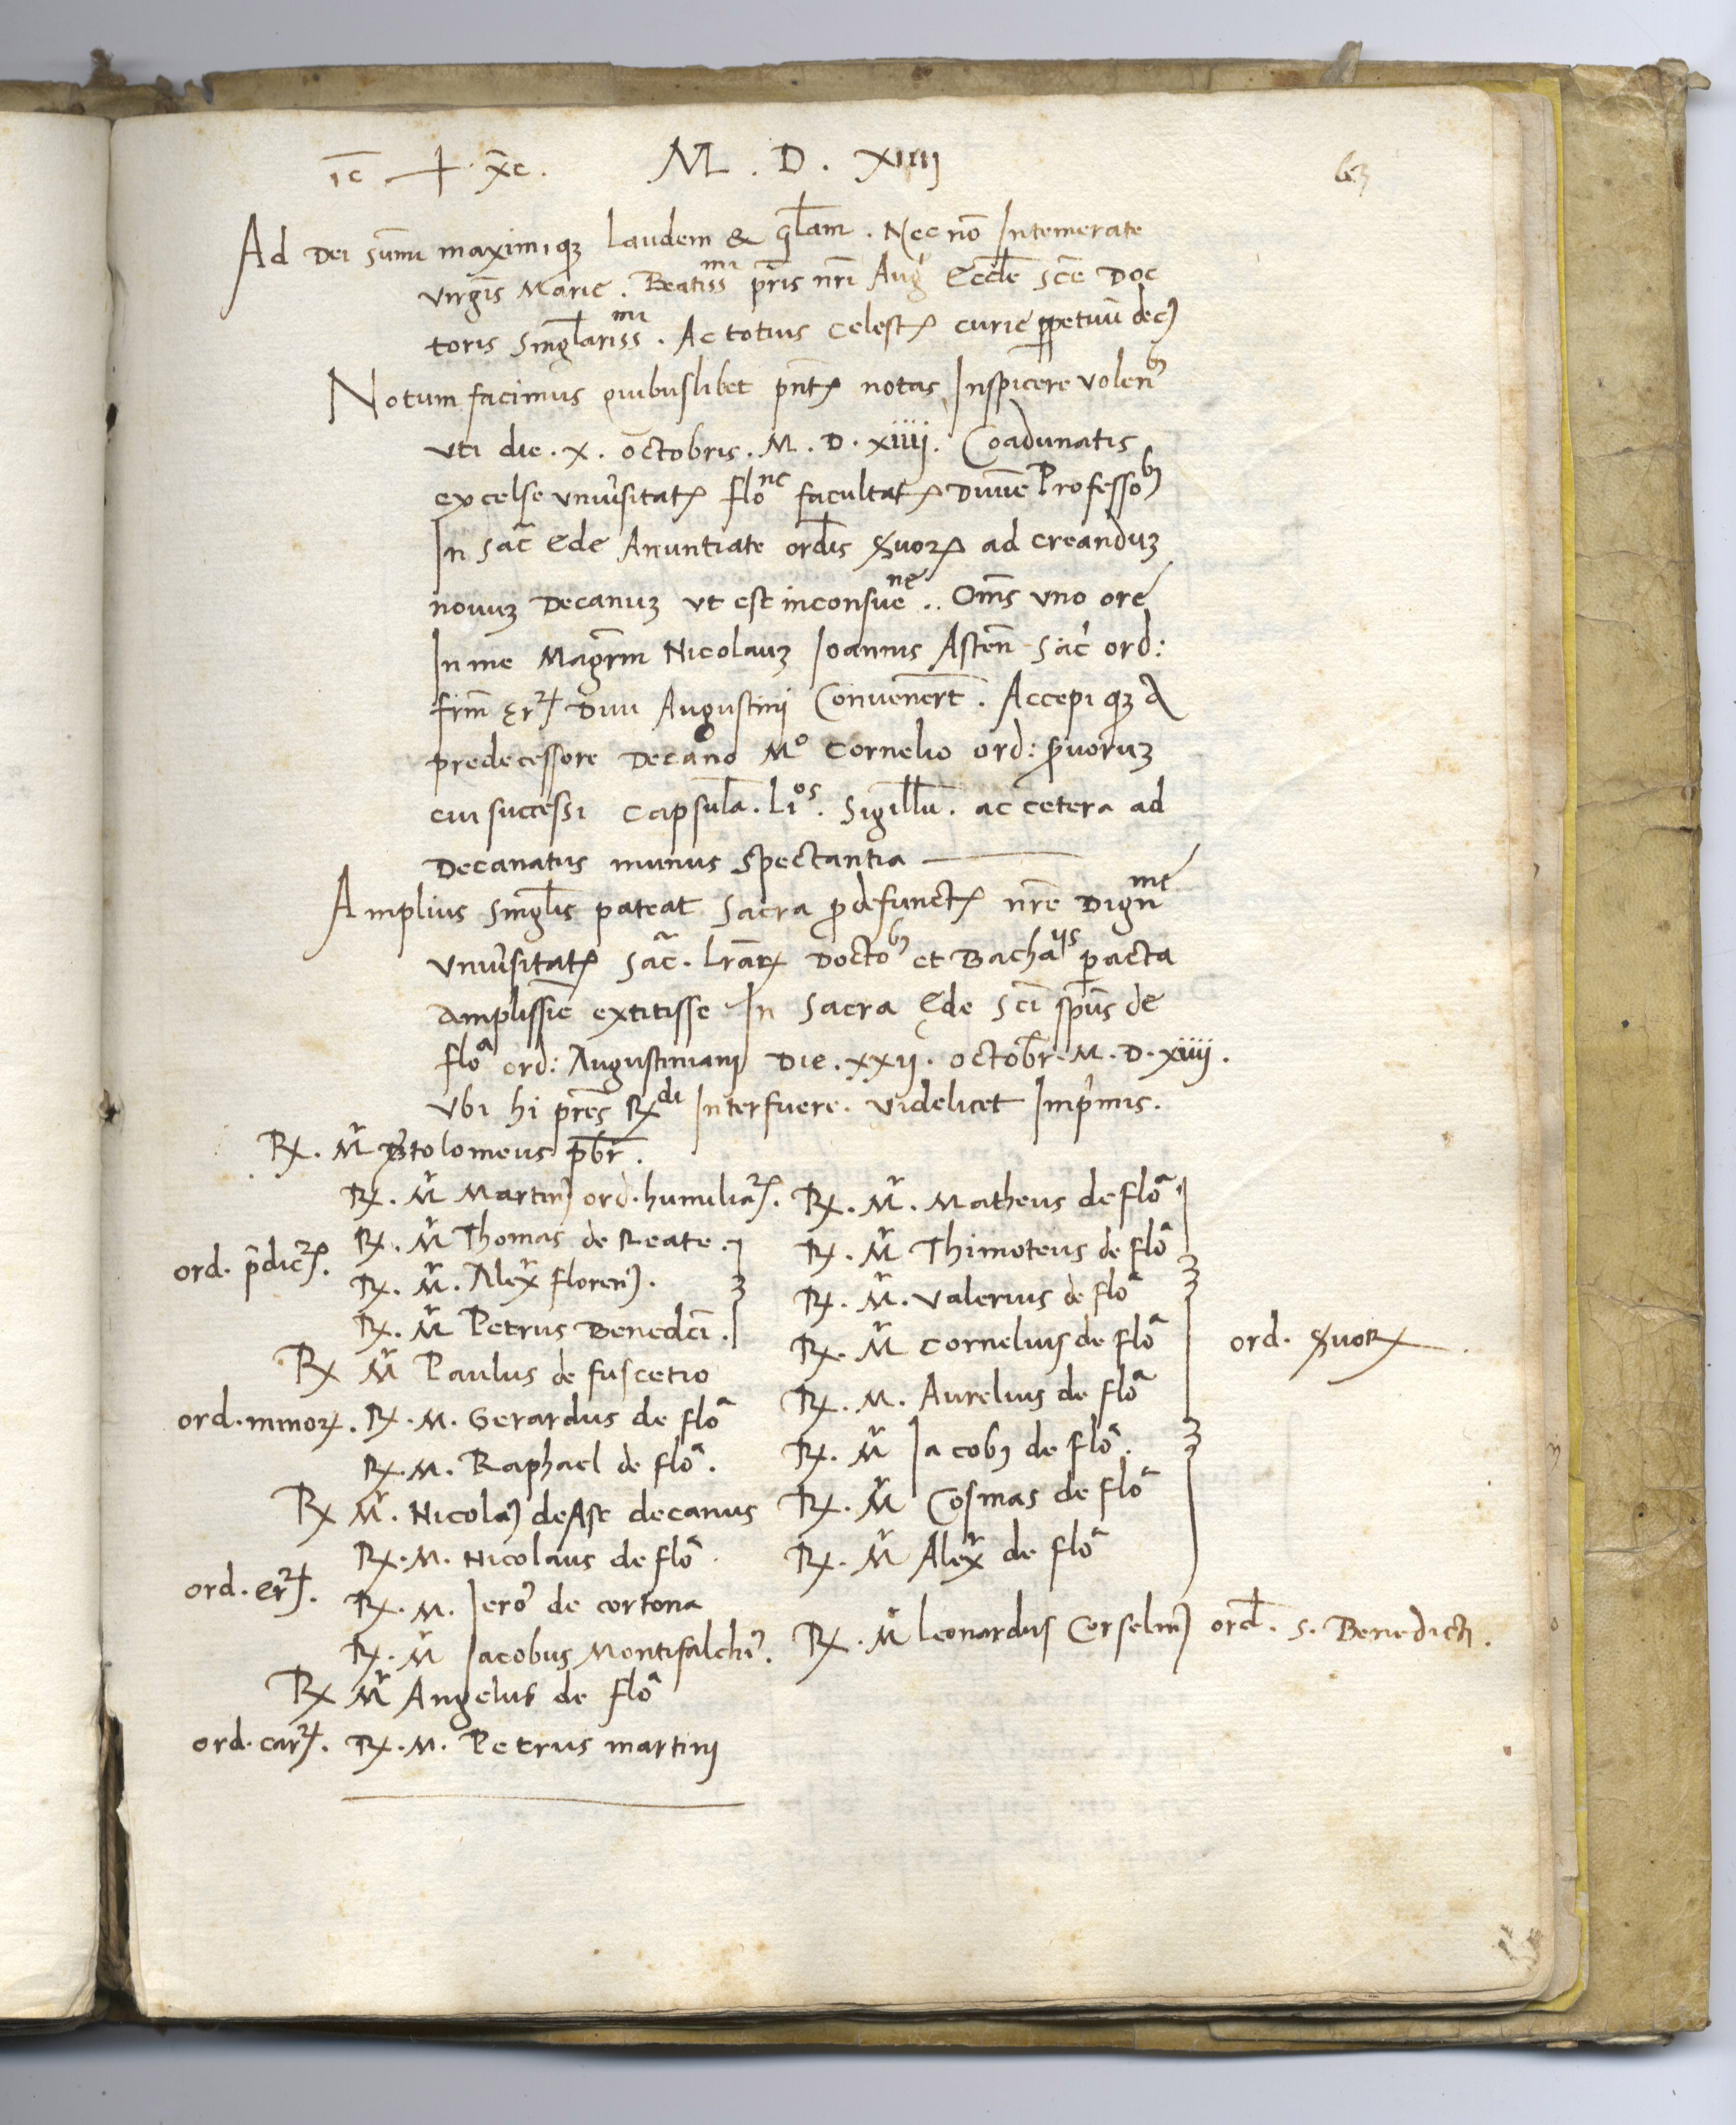 ıc + x̄c. M. D. XIIIJ 63
Ad Dei sum̄i maximiqꝫ laudem & gl̄am. Nec nō Intemerate
virgīs Marie. Beatissᵐⁱ pr̄is nr̄i Aug̾ Eccl̄e sc̄e Doc
toris Singl̄arissᵐⁱ. Ac totius celestꝭ curie ꝑpetuū decꝰ
Notum facimus quibuslibet pn̄tꝭ notas Inspicere volenᵇꝰ
vti die. x. octobris. M. D. xiiij. Coadunatis
excelse univ̾sitatꝭ floⁿᵉ facultatꝭ Diuīe Professoᵇꝰ
In sac̄ Ede Anuntiate ord̄is ẜuoꝝ ad creanduꝫ
nouuꝫ Decanuꝫ ut est inconsueⁿᵉ. Om̄s uno ore
In me Magr̄m Nicolauꝫ Joannis Asten̄ Sac̾ ord:
frm̄ ęrꝝ Diui Augustinij Convener̄t. Accepi qꝫ a
predecessore Decano Mº Cornelio ord: ẜuoruꝫ
cui successi capsul̄a. Liᵒˢ. Sigillū. ac cetera ad
Decanatus munus Spectantia
Amplius singl̄is pateat sacra ꝓ defunctꝭ nr̄e Dignᵐᵉ
univ̾sitatꝭ sac̄. lr̄aꝝ Doctoᵇꝰ et Bachaˡⁱˢ ꝑacta
amplissīe extitisse In sacra Ęde Sc̄i sp̄us de
floᵃ ord: Augustiniani Die. xxij. octobr̄. M. D. xiiij.
vbi hi pr̄es Rᵈⁱ Interfuere. videlicet Imp̾mis.
R. Mʳ Bʳtolomeus pb̄r.
R. Mʳ Martinꝰ ord. humiliaꝝ. R. Mʳ. Matheus de floᵃ
R. Mʳ Thomas de Reate. R. Mʳ Thimoteus de floᵃ
ord. p̄dicꝝ. R. Mʳ. Alexʳ florenꝰ. R. Mʳ. Valerius de floᵃ
R. Mʳ Petrus Bened̄ci. R. Mʳ Cornelius de floᵃ ord. ẜuoꝝ
R Mʳ Paulus de fuscetio R. M. Aurelius de floᵃ
ord. minoꝝ. R. M. Gerardus de floᵃ R. Mʳ Jacobꝰ de floᵃ.
R. M. Raphael de floᵃ. R. Mʳ Cosmas de floᵃ
R Mʳ. Nicolaꝰ de Ast decanus R. Mʳ Alexʳ de floᵃ
R. M. Nicolaus de floᵃ
ord. erꝝ. R. M. Jero̾ de cortona
R. Mʳ Jacobus Montifalchi̾. R. Mʳ leonardus Corselinꝰ ord. S. Benedicti.
R Mʳ Angelus de floᵃ
ord. carꝝ. R. M. Petrus martinj